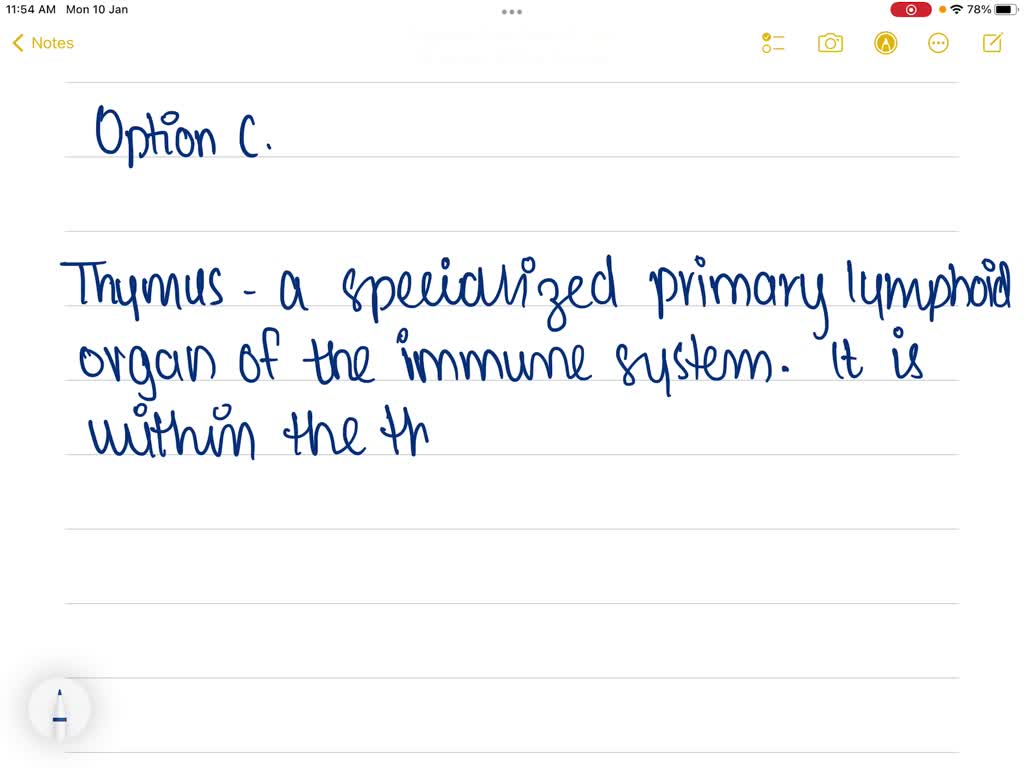 11:54 AM Mon 10 Jan
78%
Notes
Option C.
Thymus - a specialized primary lymphoid
organ of the immune system. It is
within the th